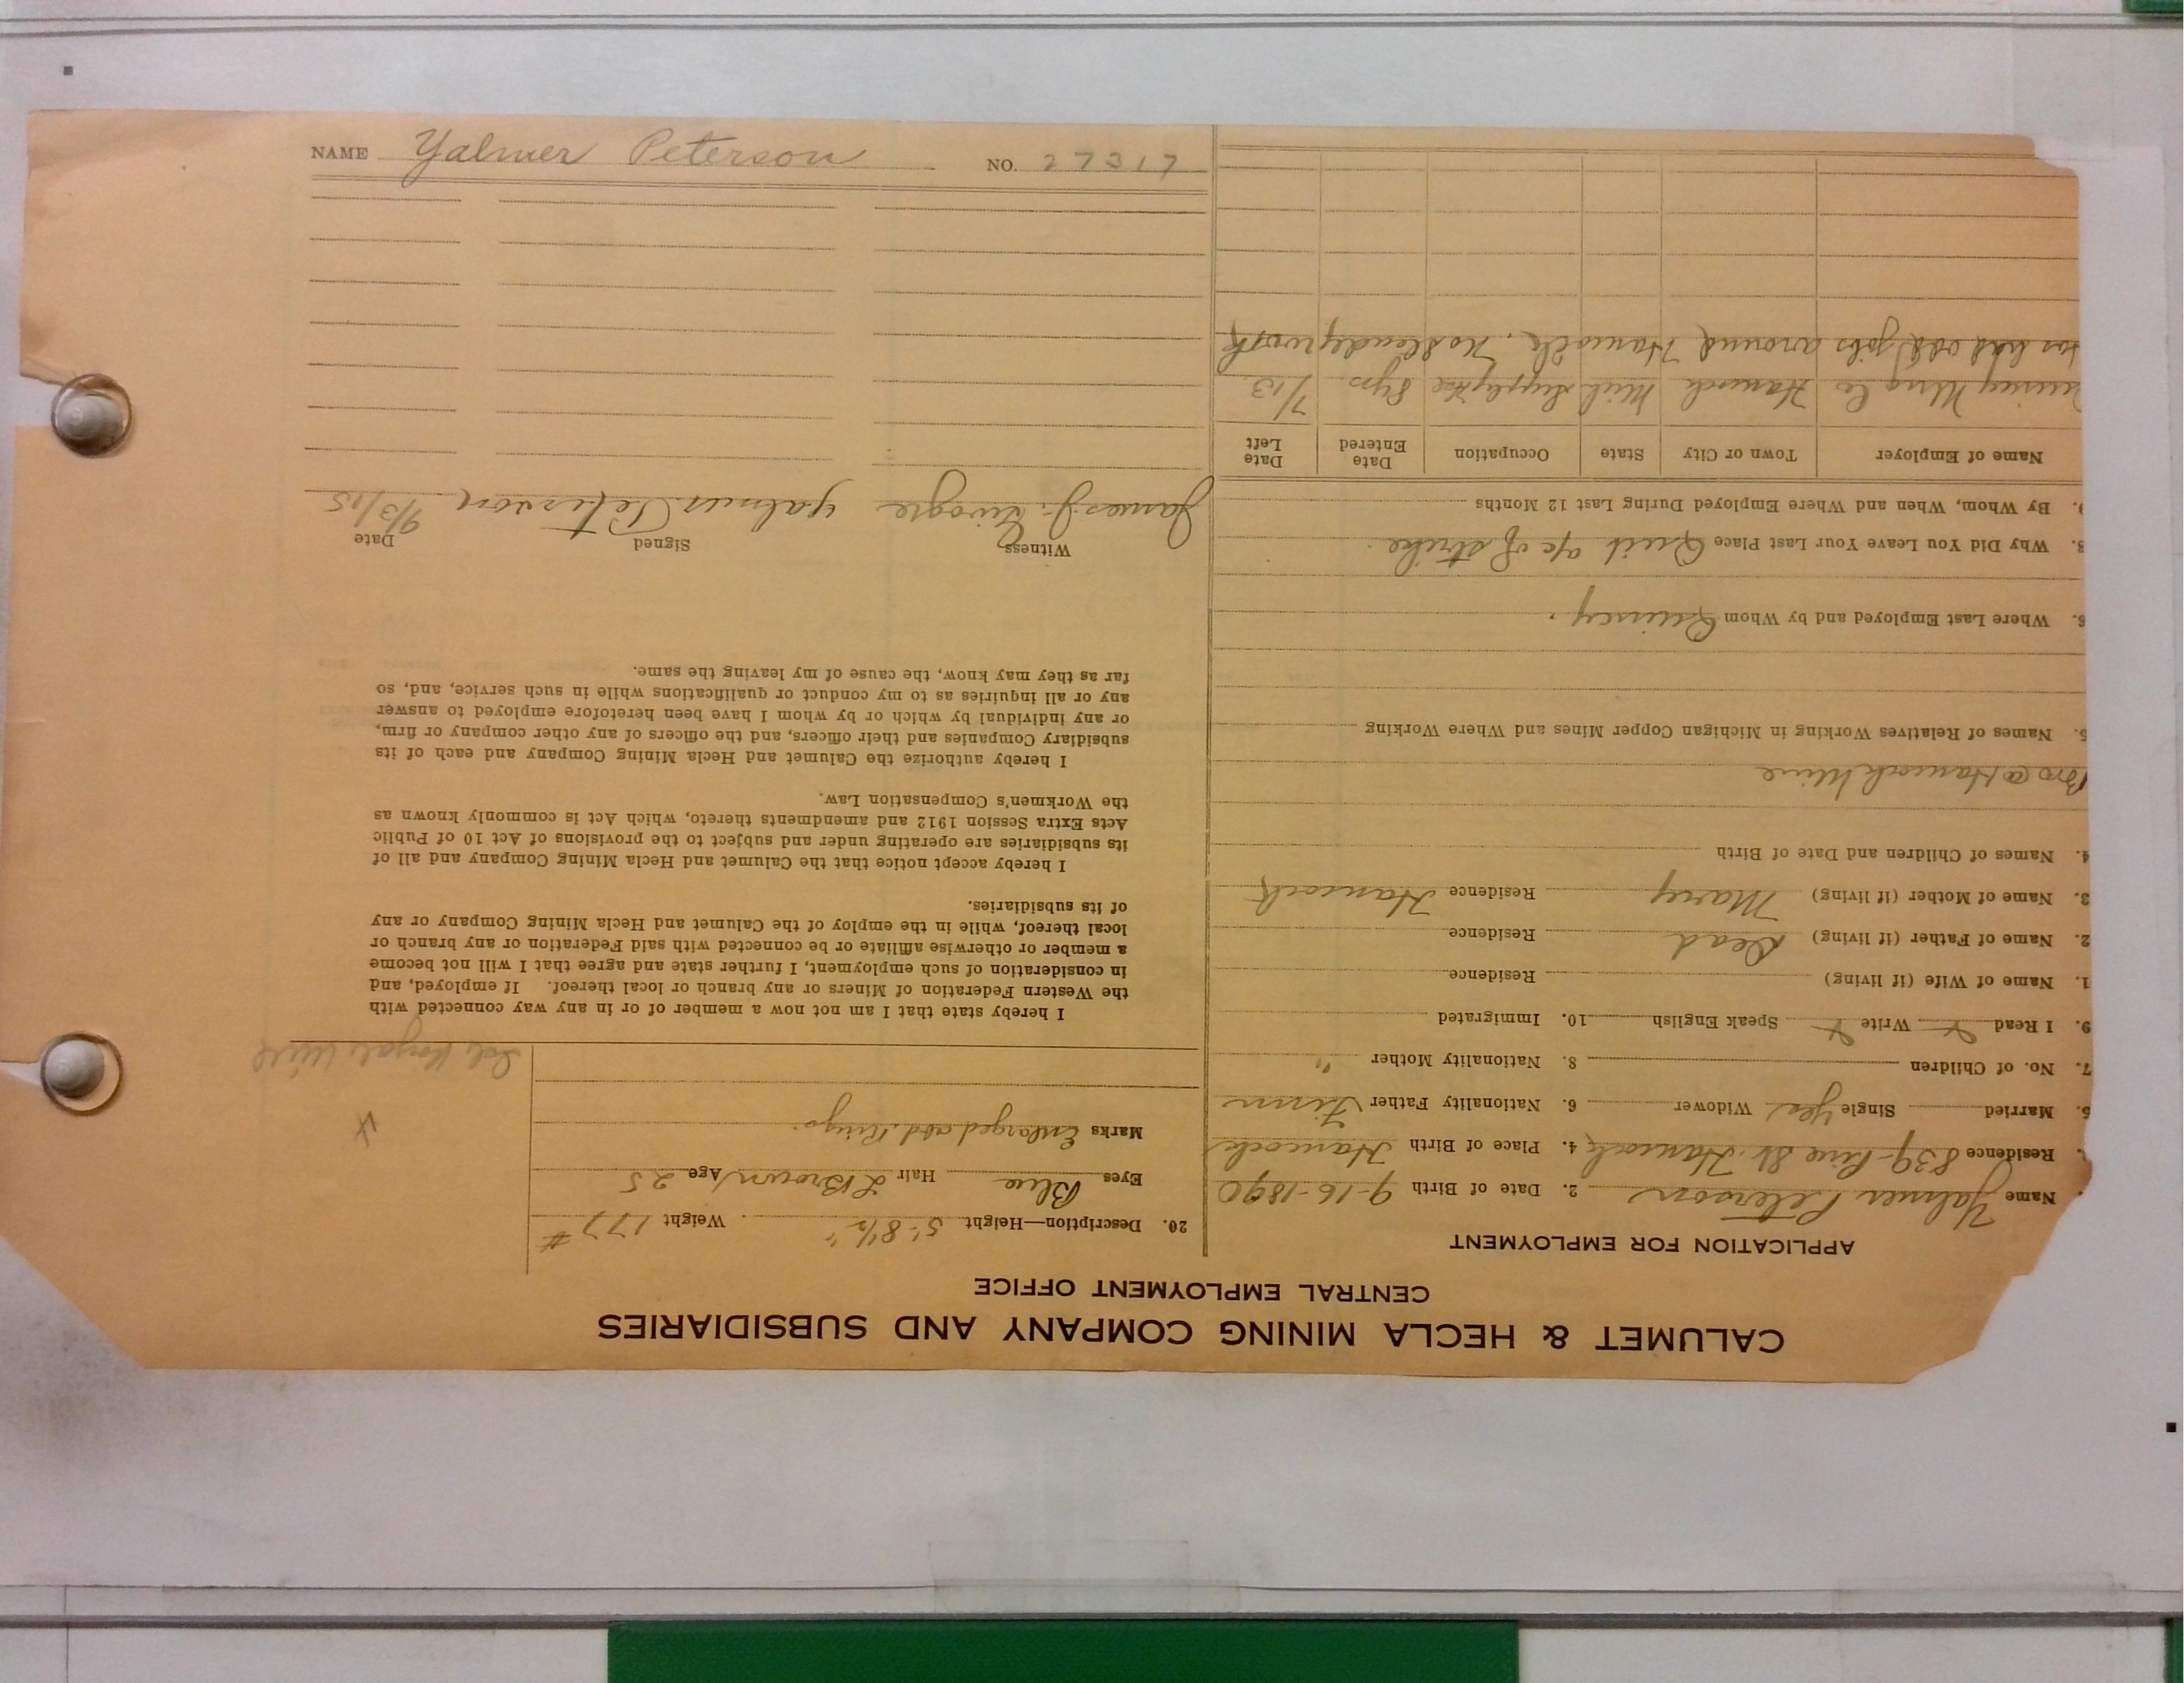 CALUMET & HECLA MINING COMPANY AND SUBSIDIARIES
CENTRAL EMPLOYMENT OFFICE
APPLICATION FOR EMPLOYMENT
Name Yalmer Peterson 2. Date of Birth 9-16-1890
Residence 839- Pine St. Hancock 4. Place of Birth Hancock
5. Married Single Yes Widower 6. Nationality Father Finn
7. No. of Children 8. Nationality Mother "
9. I Read Write Speak English 10. Immigrated
1. Name of Wife (if living) Residence
2. Name of Father (if living) Dead Residence
3. Name of Mother (if living) Mary Residence Hancock
4. Names of Children and Date of Birth
Bro @ Hancock Mine
5. Names of Relatives Working in Michigan Copper Mines and Where Working
6. Where Last Employed and by Whom Quincy.
8. Why Did You Leave Your Last Place Quit a/c of strike
9. By Whom, When and Where Employed During Last 12 Months
Name of Employer Town or City State Occupation Date Entered Date Left
Quincy Mng Co Hancock Mich 8yrs. 7/13.
has had odd jobs around Hancock. No steady work
20. Description—Height 5'-8½" Weight 177 #
Eyes Blue Hair L Brown Age 25
Marks Enlarged abd. Rings.
X
I hereby state that I am not now a member of or in any way connected with
the Western Federation of Miners or any branch or local thereof. If employed, and
in consideration of such employment, I further state and agree that I will not become
a member or otherwise affiliate or be connected with said Federation or any branch or
local thereof, while in the employ of the Calumet and Hecla Mining Company or any
of its subsidiaries.
I hereby accept notice that the Calumet and Hecla Mining Company and all of
its subsidiaries are operating under and subject to the provisions of Act 10 of Public
Acts Extra Session 1912 and amendments thereto, which Act is commonly known as
the Workmen's Compensation Law.
I hereby authorize the Calumet and Hecla Mining Company and each of its
subsidiary Companies and their officers, and the officers of any other company or firm,
or any individual by which or by whom I have been heretofore employed to answer
any or all inquiries as to my conduct or qualifications while in such service, and, so
far as they may know, the cause of my leaving the same.
Witness Signed Date
James J. Yalmer Peterson 9/3/15
NAME Yalmer Peterson NO. 27317